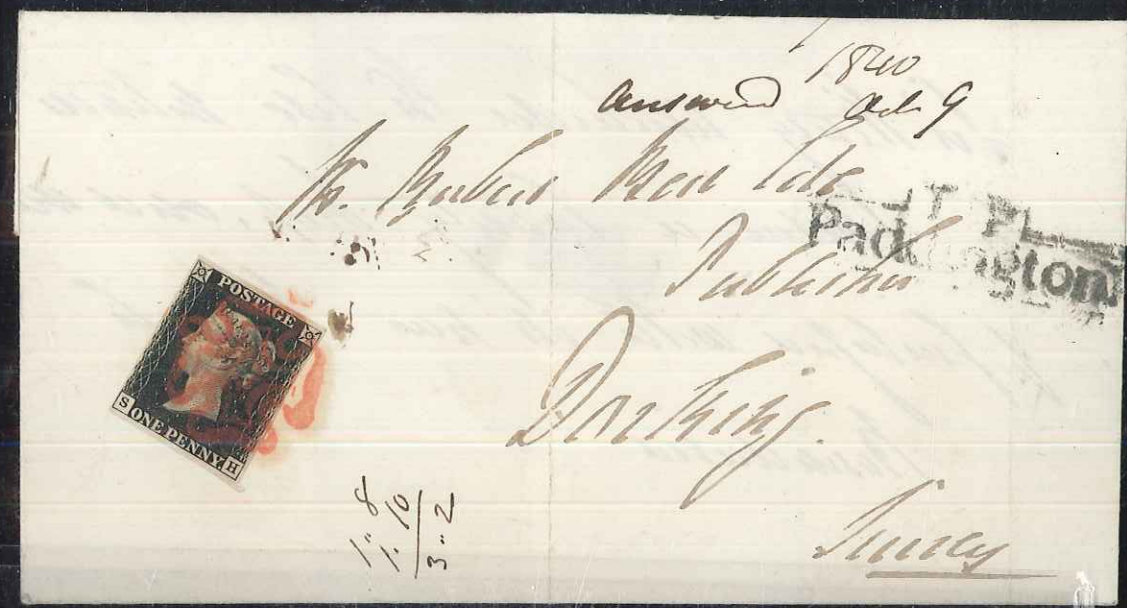 1840
Answered Oct 9
Mr. Robert Best Ede
Publisher
Dorking.
Surrey
T. P.
Paddington
POSTAGE
ONE PENNY
S H
1.. 8
1. 10
3.. 2